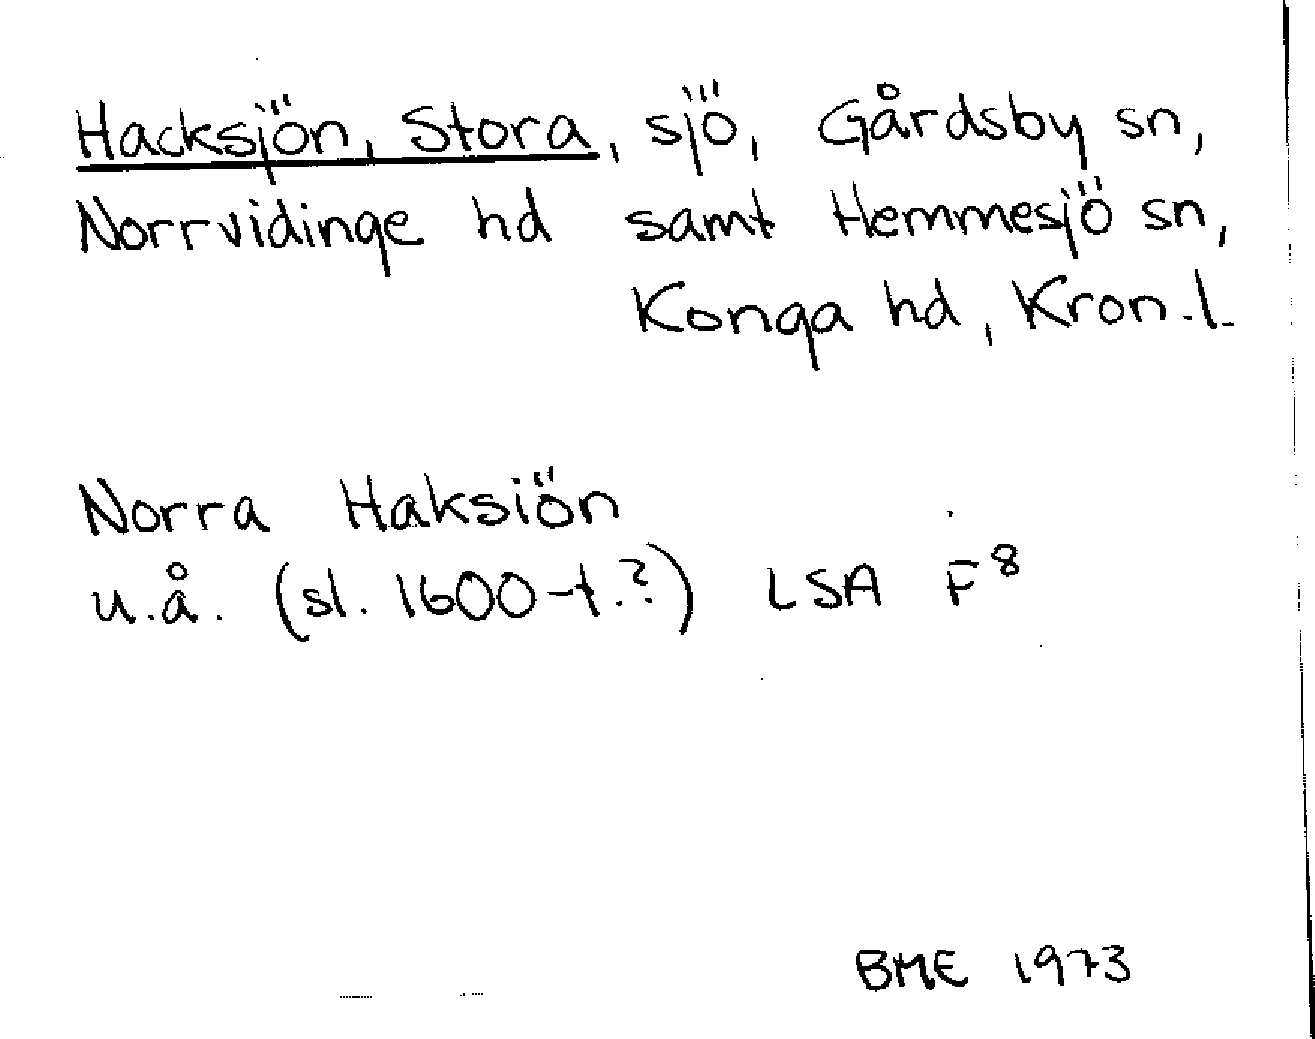 Hacksjön, Stora, sjö, Gårdsby sn,
Norrvidinge hd samt Hemmesjö sn,
Konga hd, Kron.l.
Norra Haksiön
u.å. (sl. 1600-t.?) LSA F⁸
BME 1973